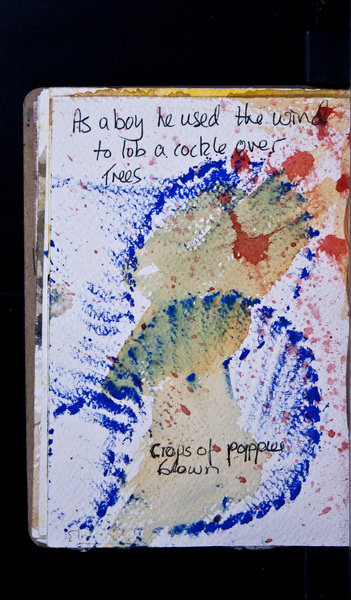 As a boy he used the wind
to lob a cockle over
Trees
Crops of poppies
blown